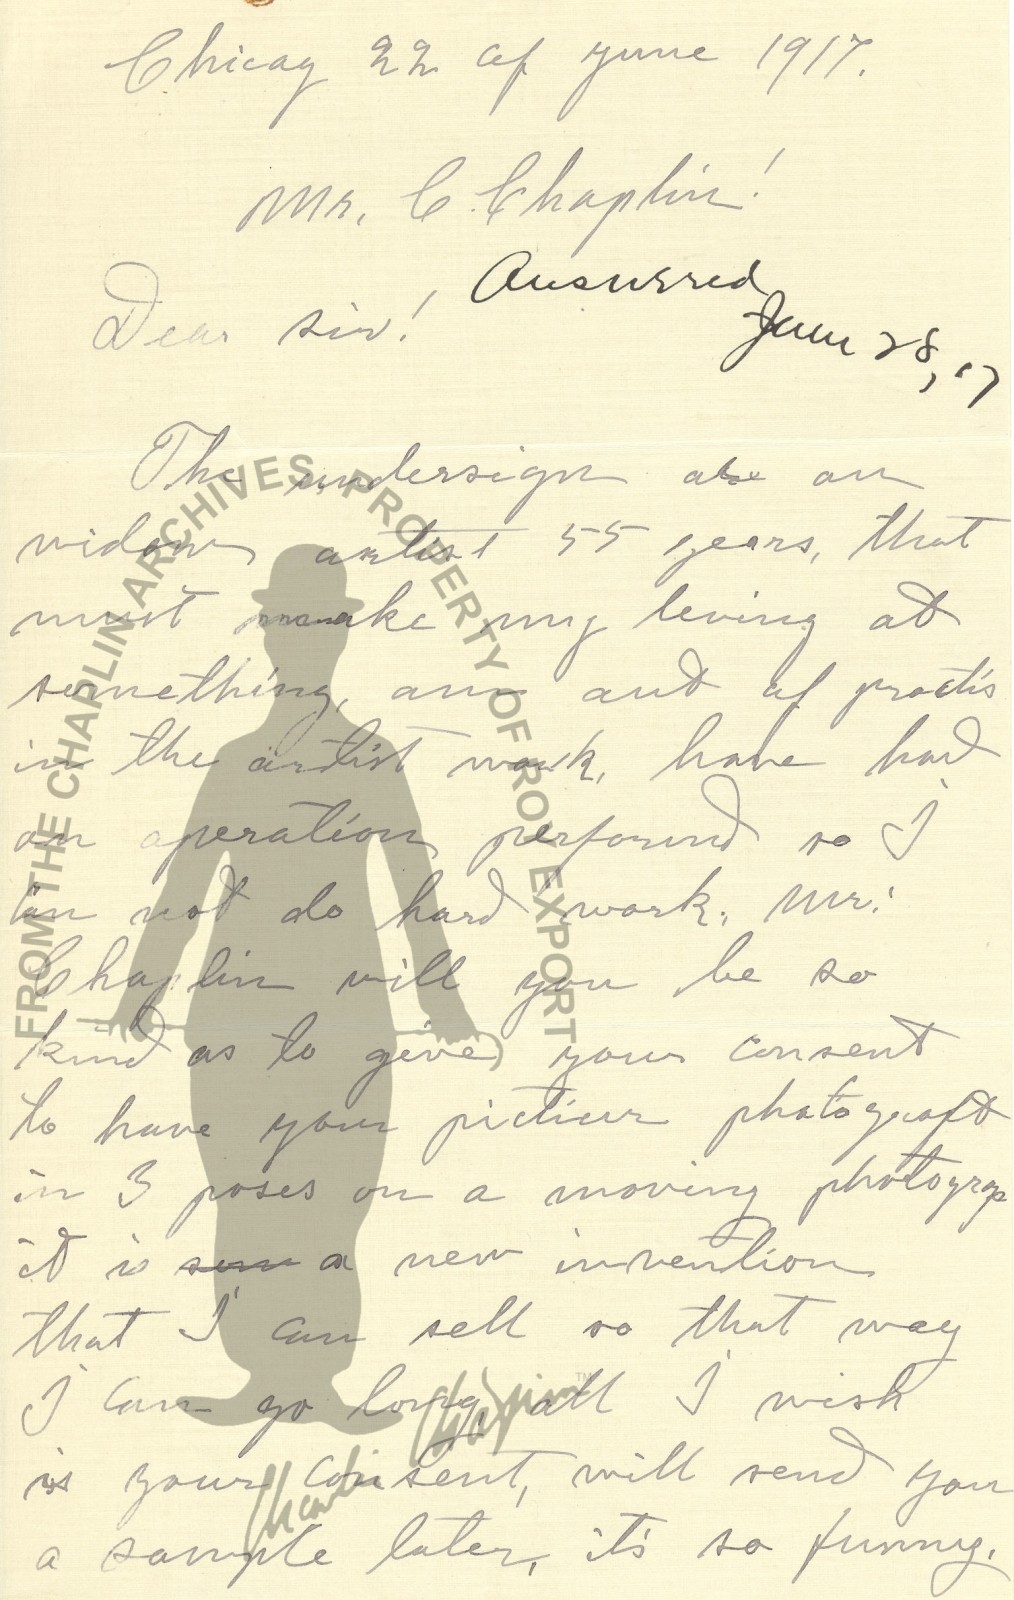 Chicag 22 of yune 1917.
Mr. C. Chaplin!
Answered
Dear sir!
June 28, '17
The undersign are an
widow artist 55 years, that
must make my leving at
something, am aut of practis
in the artist work, have had
an operation performd so I
can not do hard work. Mr!
Chaplin will you be so
kind as to give your consent
to have your pictiur photograft
in 3 poses on a moving photograp
it is a new invention
that I can sell so that way
I can go long, all I wish
is your consent, will send you
a sample later, it's so funny.
FROM THE CHAPLIN ARCHIVES, PROPERTY OF ROY EXPORT
Charlie Chaplin™